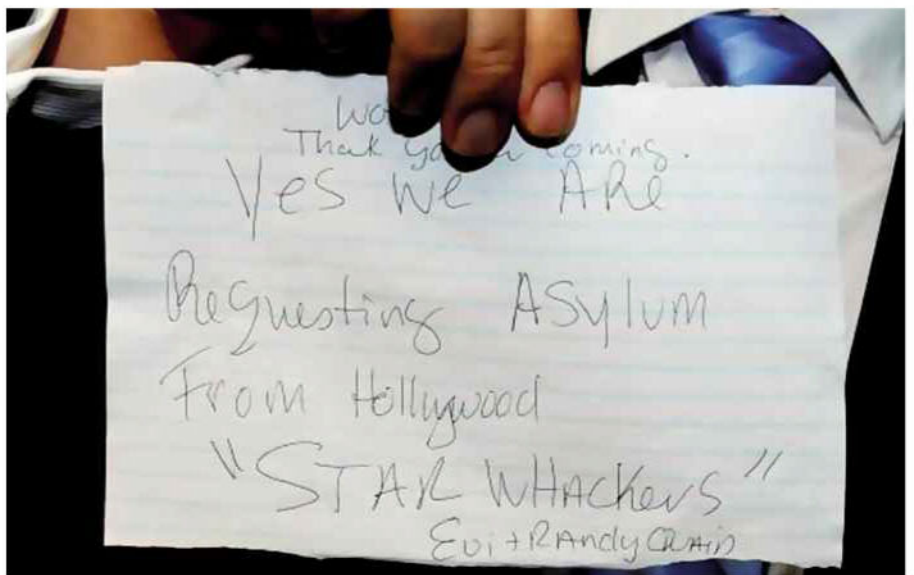 Thank coming.
Yes we ARe
Requesting Asylum
From Hollywood
"STAR WHACkers"
Evi + RAndy QuAid